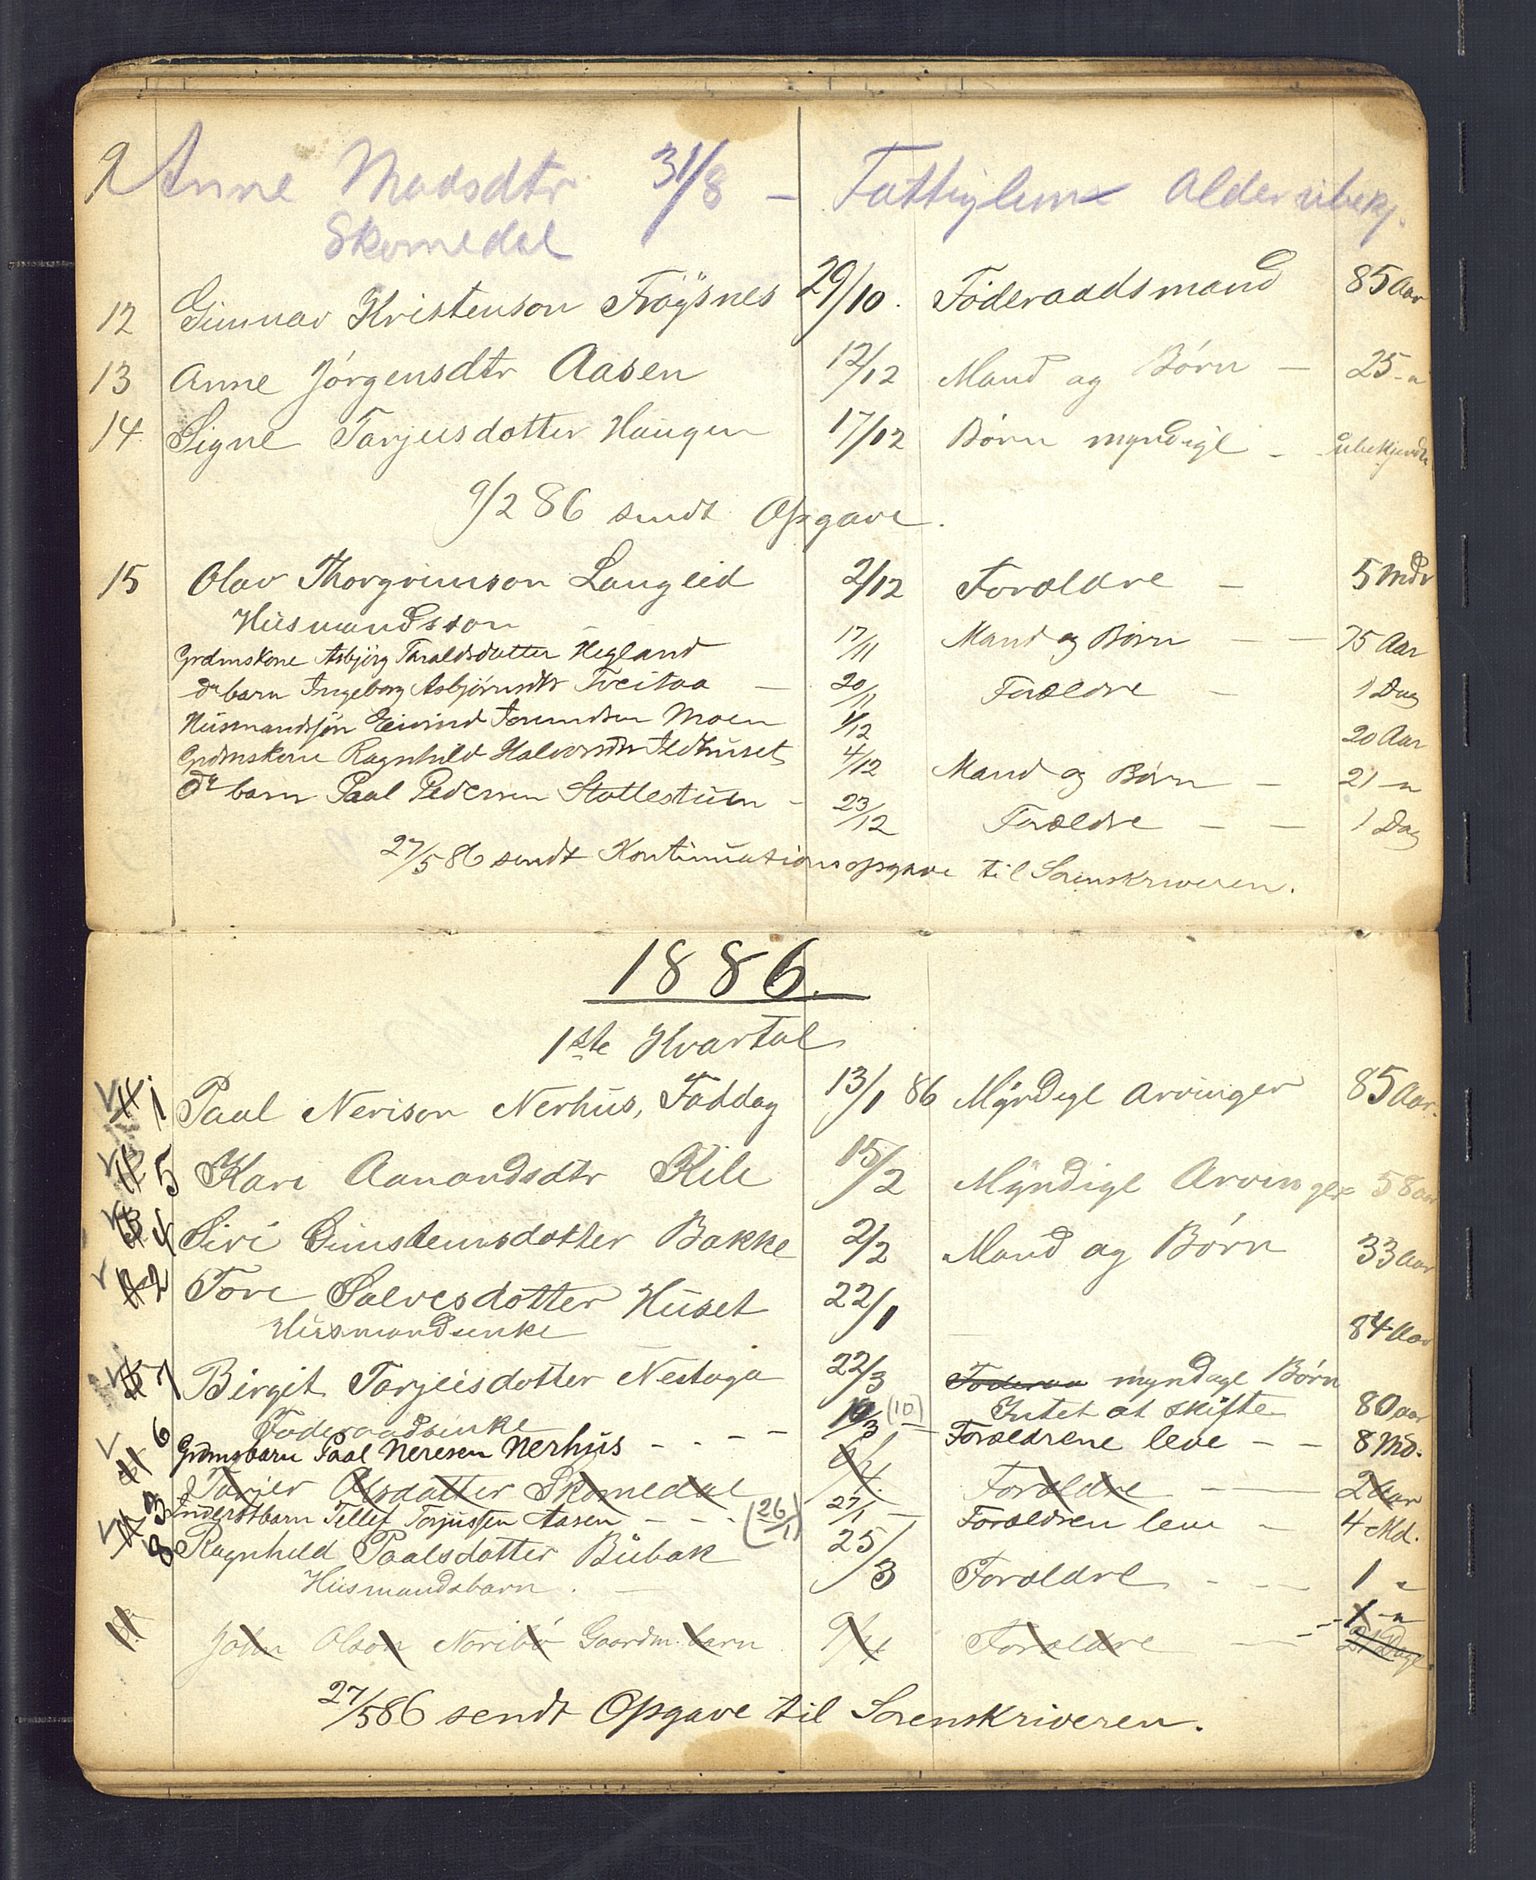 9 Anne Madsdtr 31/8 — Fattiglem Alder ubekj.
Skomedal
12 Gunnar Kristenson Frøysnes 29/10. Föderaadsmand 85 Aar
13 Anne Jörgensdtr Aasen 12/12 Mand og Børn — 25 - "
14 Signe Tarjeisdotter Haugen 17/12 Børn myndige - ubekjendt
9/2 86 sendt Opgave.
15 Olav Thorgrimson Langeid 2/12 Forældre — 5 Mdr
Husmandsson
Grdmskone Asbjörg Taraldsdatter Hegland 17/11 Mand og Børn — — 75 Aar
do barn Ingeborg Asbjørnsdtr Tveitaa — 20/11 Forældre — 1 Dag
Husmandssøn Eivind Jorundsen Moen 1/12 20 Aar
Grdmskone Ragnhild Halvorsdtr Ildhuset 4/12 Mand og Børn — 21 - "
do barn Paal Pedersen Stallestuen - 23/12 Forældre — — 1 Dag
27/5 86 sendt Kontinuationsopgave til Sorenskriveren.
1886.
1ste Kvartal
1 Paal Nerison Nerhus, Faddag 13/1 86 Myndige Arvinger 85 Aar.
5 Kari Aanandsdtr Kile 15/2 Myndige Arvinger 58 aar
4 Siri Gunsteinsdotter Bakke 2/2 Mand og Børn 33 aar
2 Tore Salvesdotter Huset 22/1
Husmandsenke — 84 Aar
7 Birgit Tarjeisdotter Nestoga 22/3 Föderaa myndige Børn
Föderaadsenke Intet at skifte 80 aar
6 Grdmsbarn Paal Neresen Nerhus - - - - 10/3 (10) — Forældrene leve — — 8 Md.
Tarjer Olsdatter Skomedal 6/4 Forældre — — 2 Aar
3 Inderstbarn Tellef Torjussen Aasen - - - (26/1) 27/1 — Forældren leve — 4 Md.
8 Ragnhild Paalsdotter Bübak 25/3 Forældre - - - 1 "
Husmandsbarn . —
11 John Olson Noribø Gaardm. barn 9/4 Forældre — — 1 - "
27/5 86 sendt Opgave til Sorenskriveren.